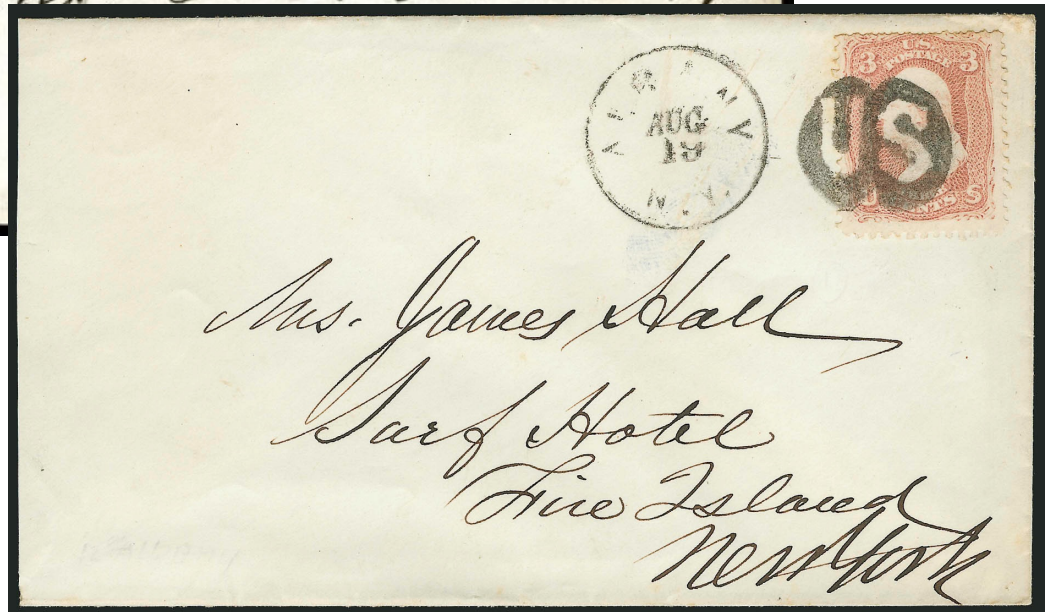 ALBANY
AUG
19
N.Y.
3 U.S. POSTAGE 3
US
U CENTS S
Mrs. James Hall
Surf Hotel
Fire Island
New York